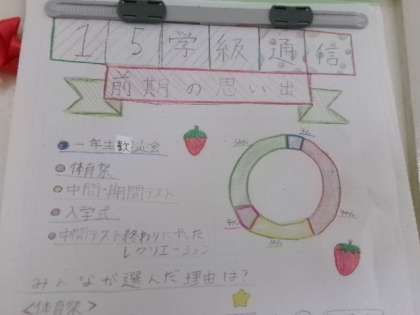 15学級通信
前期の思い出
一年生歓迎会
体育祭
中間・期間テスト
入学式
中間テスト終わりにやった
レクリエーション
みんなが選んだ理由は？
<体育祭>